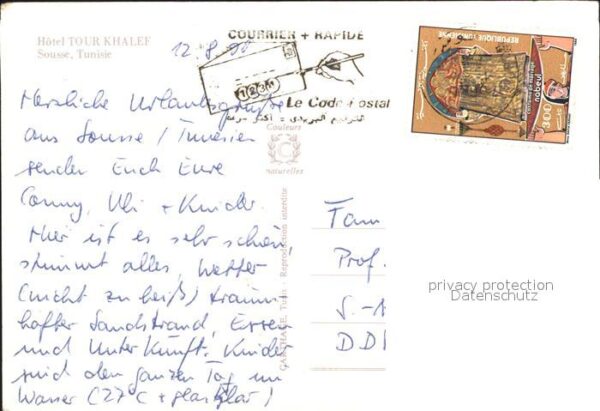 Hôtel TOUR KHALEF
Sousse, Tunisie
12.8.90
COURRIER + RAPIDE
1234
Le Code Postal
الترقيم البريدي = أكثر سرعة
REPUBLIQUE TUNISIENNE
nabeul
نابل
300
Herzliche Urlaubsgrüße
aus Sousse / Tunesien
senden Euch Eure
Conny, Uli + Kinder.
Hier ist es sehr schön
stimmt alles, Wetter
(nicht zu heiß) traum-
hafter Sandstrand, Essen
und Unterkunft. Kinder
sind den ganzen Tag im
Wasser (27°C + glasklar!
Couleurs
C
naturelles
CARTHAGE, Tunis - Reproduction interdite
Fam
Prof.
S.-1
DDR
privacy protection
Datenschutz